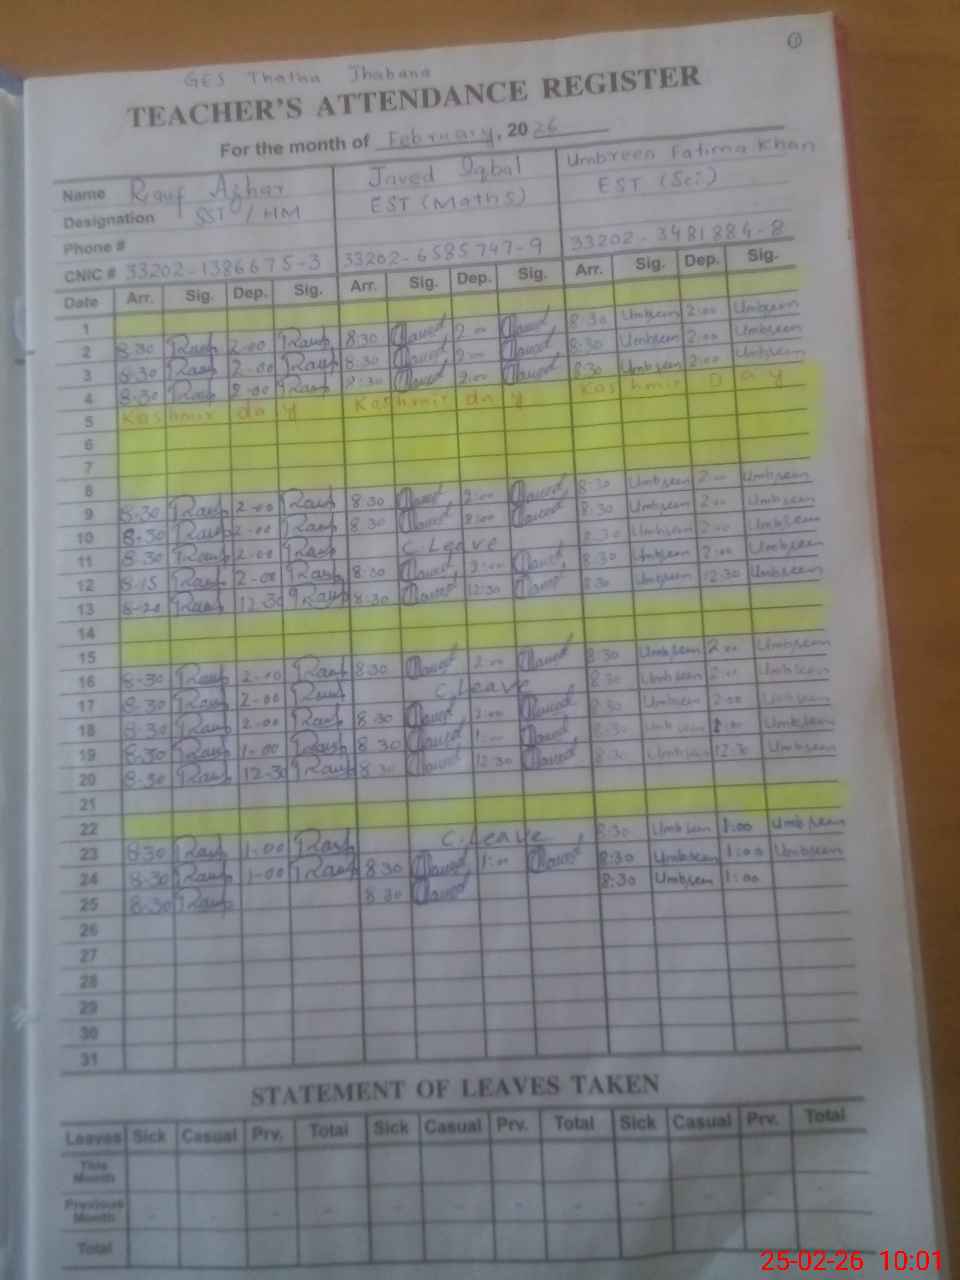 ①
GES Thatha Jhabana
TEACHER'S ATTENDANCE REGISTER
For the month of February, 2026
Name Rauf Azhar Javed Iqbal Umbreen Fatima Khan
Designation SST / HM EST (Maths) EST (Sci)
Phone #
CNIC # 33202-1386675-3 33202-6585747-9 33202-3481884-8
Date Arr. Sig. Dep. Sig. Arr. Sig. Dep. Sig. Arr. Sig. Dep. Sig.
1
2 8:30 Rauf 2-00 Rauf 8:30 Javed 2:00 Javed 8:30 Umbreen 2:00 Umbreen
3 8:30 Rauf 2-00 Rauf 8:30 Javed 2:00 Javed 8:30 Umbreen 2:00 Umbreen
4 8:30 Rauf 2-00 Rauf 8:30 Javed 2:00 Javed 8:30 Umbreen 2:00 Umbreen
5 Kashmir day Kashmir day Kashmir Day
6
7
8
9 8-30 Rauf 2-00 Rauf 8:30 Javed 2:00 Javed 8:30 Umbreen 2:00 Umbreen
10 8-30 Rauf 2-00 Rauf 8:30 Javed 2:00 Javed 8:30 Umbreen 2:00 Umbreen
11 8-30 Rauf 2-00 Rauf C.Leave 8:30 Umbreen 2:00 Umbreen
12 8-15 Rauf 2-00 Rauf 8:30 Javed 2:00 Javed 8:30 Umbreen 2:00 Umbreen
13 8-20 Rauf 12-30 Rauf 8:30 Javed 12:30 Javed 8:30 Umbreen 12:30 Umbreen
14
15
16 8-30 Rauf 2-00 Rauf 8:30 Javed 2:00 Javed 8:30 Umbreen 2:00 Umbreen
17 8-30 Rauf 2-00 Rauf C.Leave 8:30 Umbreen 2:00 Umbreen
18 8-30 Rauf 2-00 Rauf 8:30 Javed 2:00 Javed 8:30 Umbreen 2:00 Umbreen
19 8-30 Rauf 1-00 Rauf 8:30 Javed 1:00 Javed 8:30 Umbreen 1:00 Umbreen
20 8-30 Rauf 12-30 Rauf 8:30 Javed 12:30 Javed 8:30 Umbreen 12:30 Umbreen
21
22
23 8:30 Rauf 1-00 Rauf C.Leave 8:30 Umbreen 1:00 Umbreen
24 8-30 Rauf 1-00 Rauf 8:30 Javed 1:00 Javed 8:30 Umbreen 1:00 Umbreen
25 8-30 Rauf 8:30 Javed 8:30 Umbreen 1:00
26
27
28
29
30
31
STATEMENT OF LEAVES TAKEN
Leaves Sick Casual Prv. Total Sick Casual Prv. Total Sick Casual Prv. Total
This Month
Previous Month - - - - - - - - - - - -
Total
25-02-26 10:01